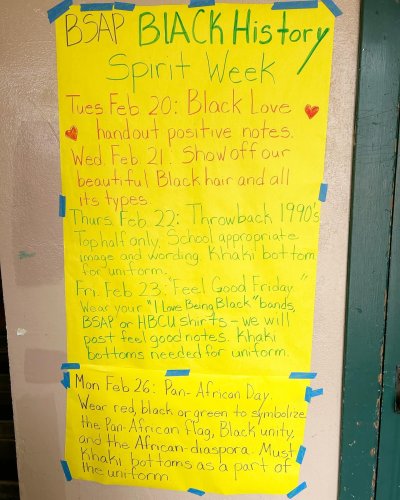 BSAP BlACK History
Spirit Week
Tues Feb 20: Black Love
handout positive notes.
Wed. Feb 21: Show off our
beautiful Black hair and all
its types.
Thurs. Feb 22: Throwback 1990's
Top half only. School appropriate
image and wording. Khaki bottom
for uniform.
Fri. Feb 23: "Feel Good Friday"
Wear your "I Love Being Black" bands,
BSAP or HBCU shirts - we will
post feel good notes. Khaki
bottoms needed for uniform.
Mon Feb 26: Pan-African Day.
Wear red, black or green to symbolize
the Pan-African flag, Black unity,
and the African diaspora. Must
Khaki bottoms as a part of
the uniform.